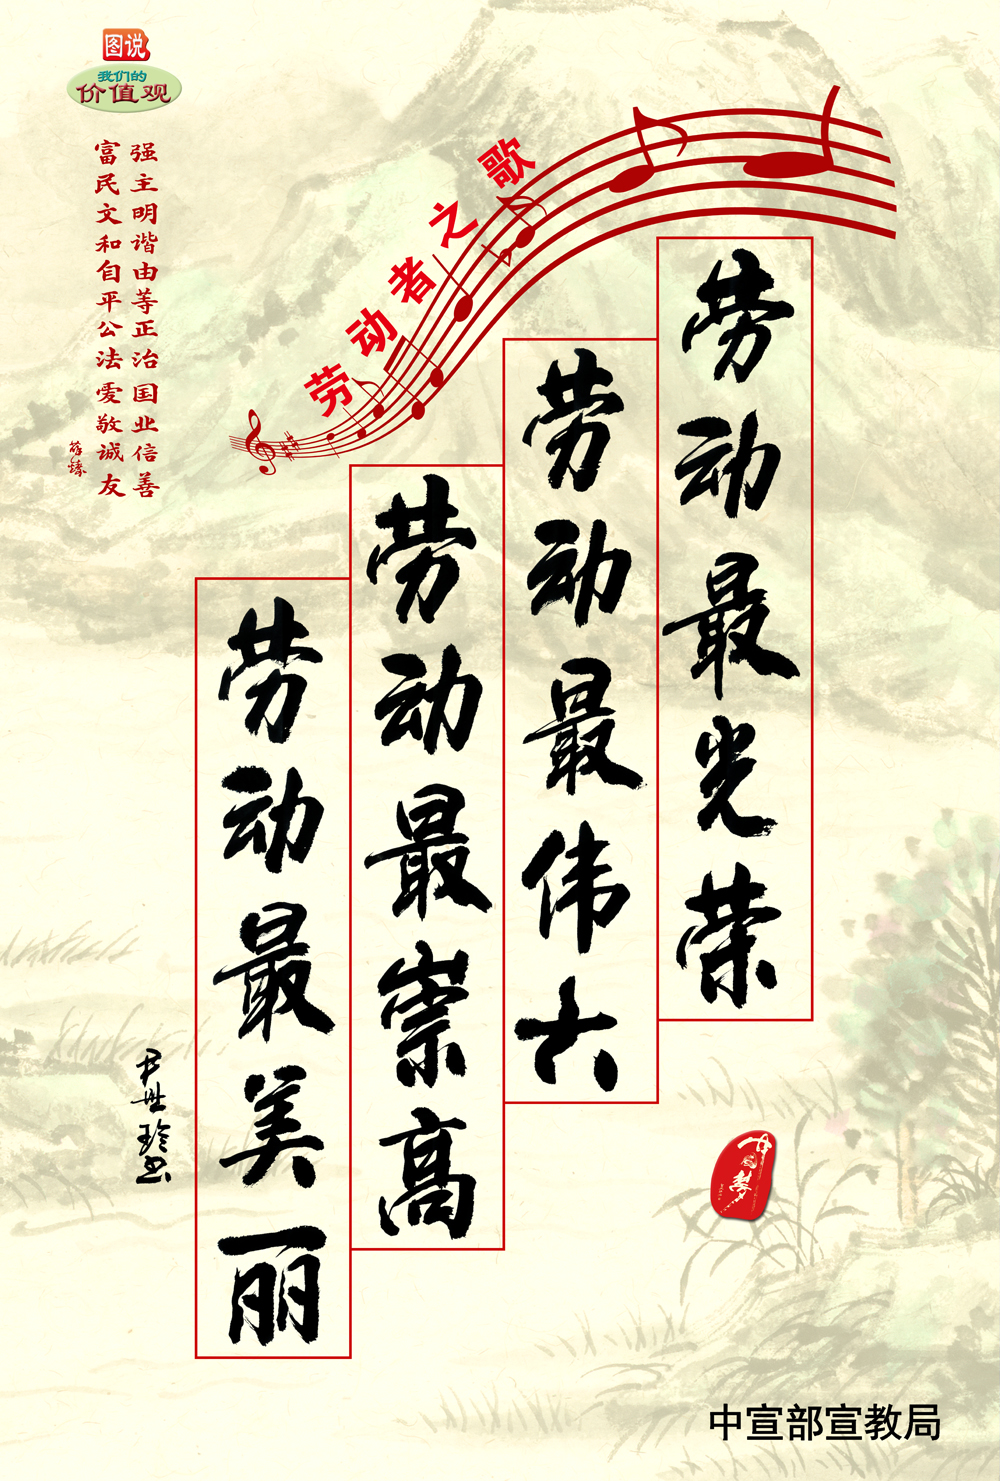 图说
我们的
价值观
富强
民主
文明
和谐
自由
平等
公正
法治
爱国
敬业
诚信
友善
薛臻
劳动者之歌
劳动最光荣
劳动最伟大
劳动最崇高
劳动最美丽
尹世玲书
中国梦
中宣部宣教局